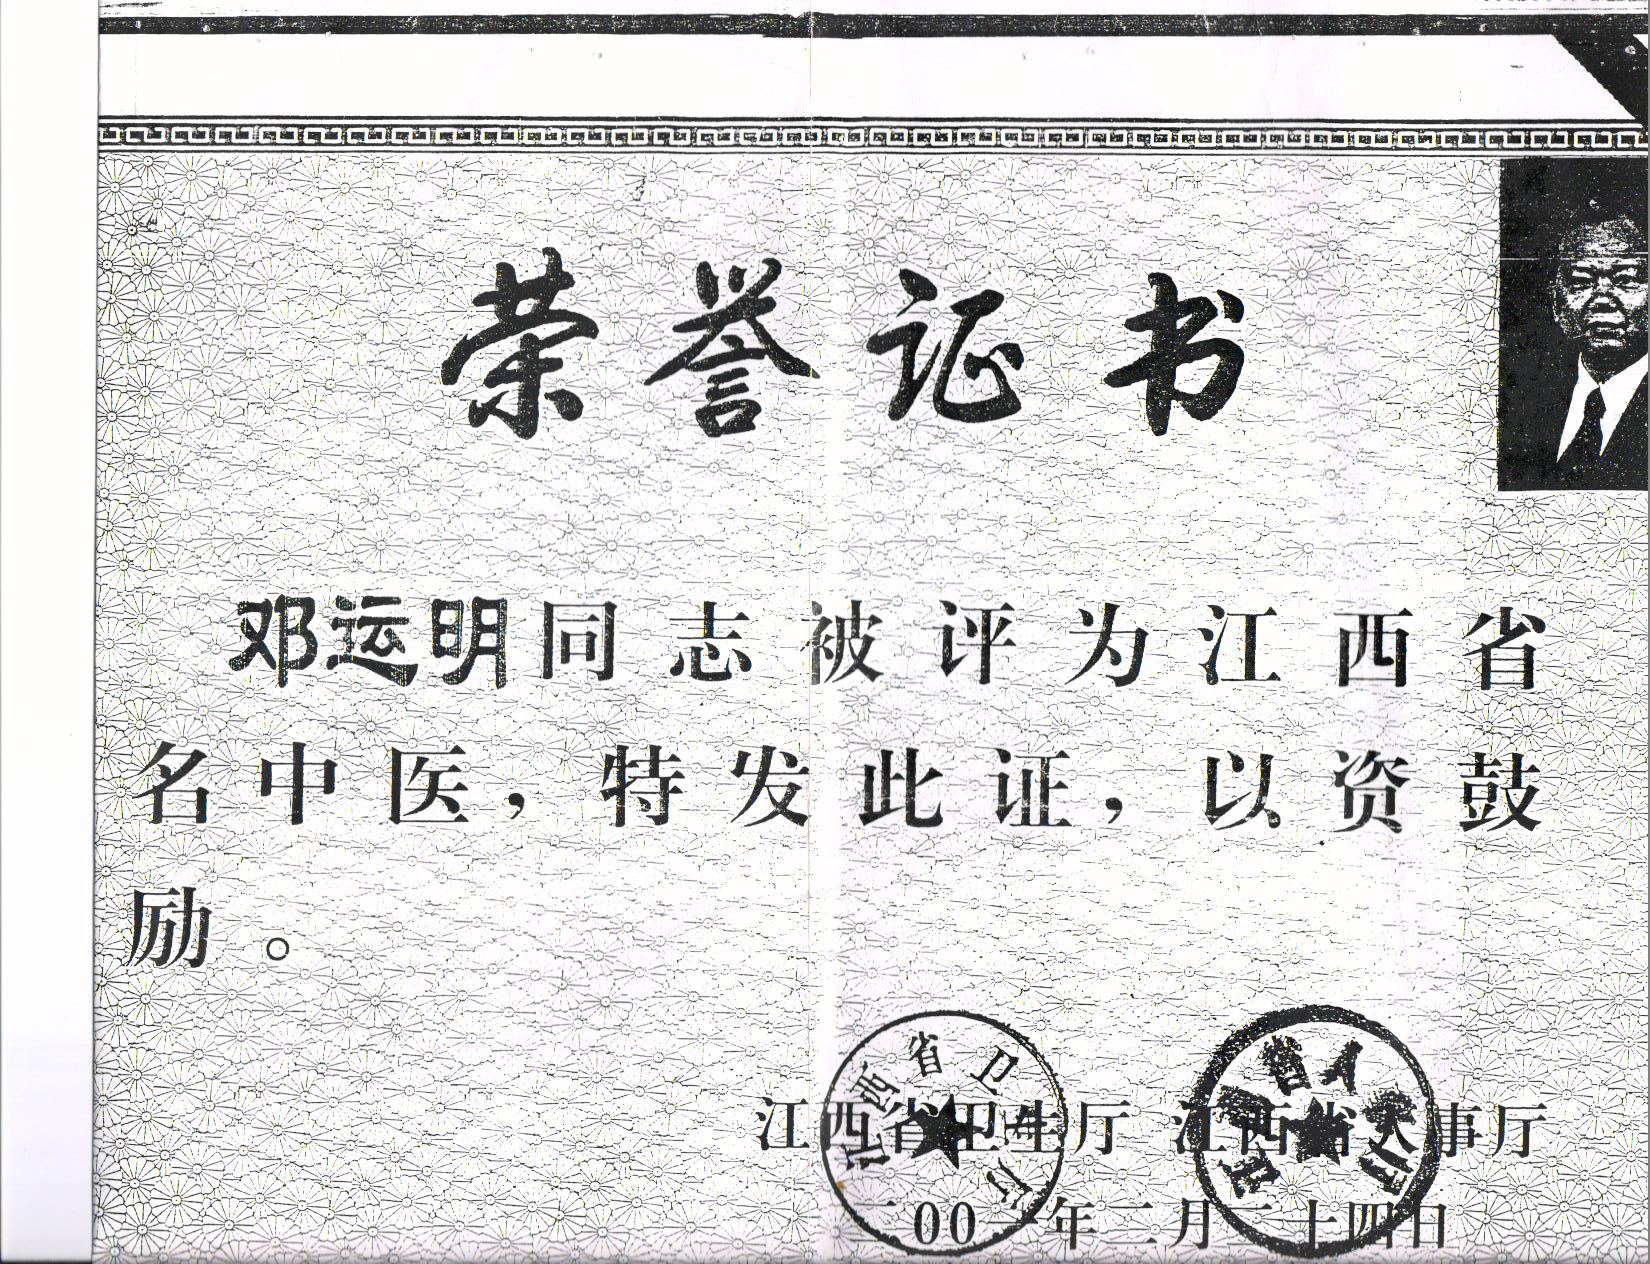 荣誉证书
邓运明同志被评为江西省
名中医，特发此证，以资鼓
励。
江西省卫生厅 江西省人事厅
二00一年二月二十四日
江西省卫生厅